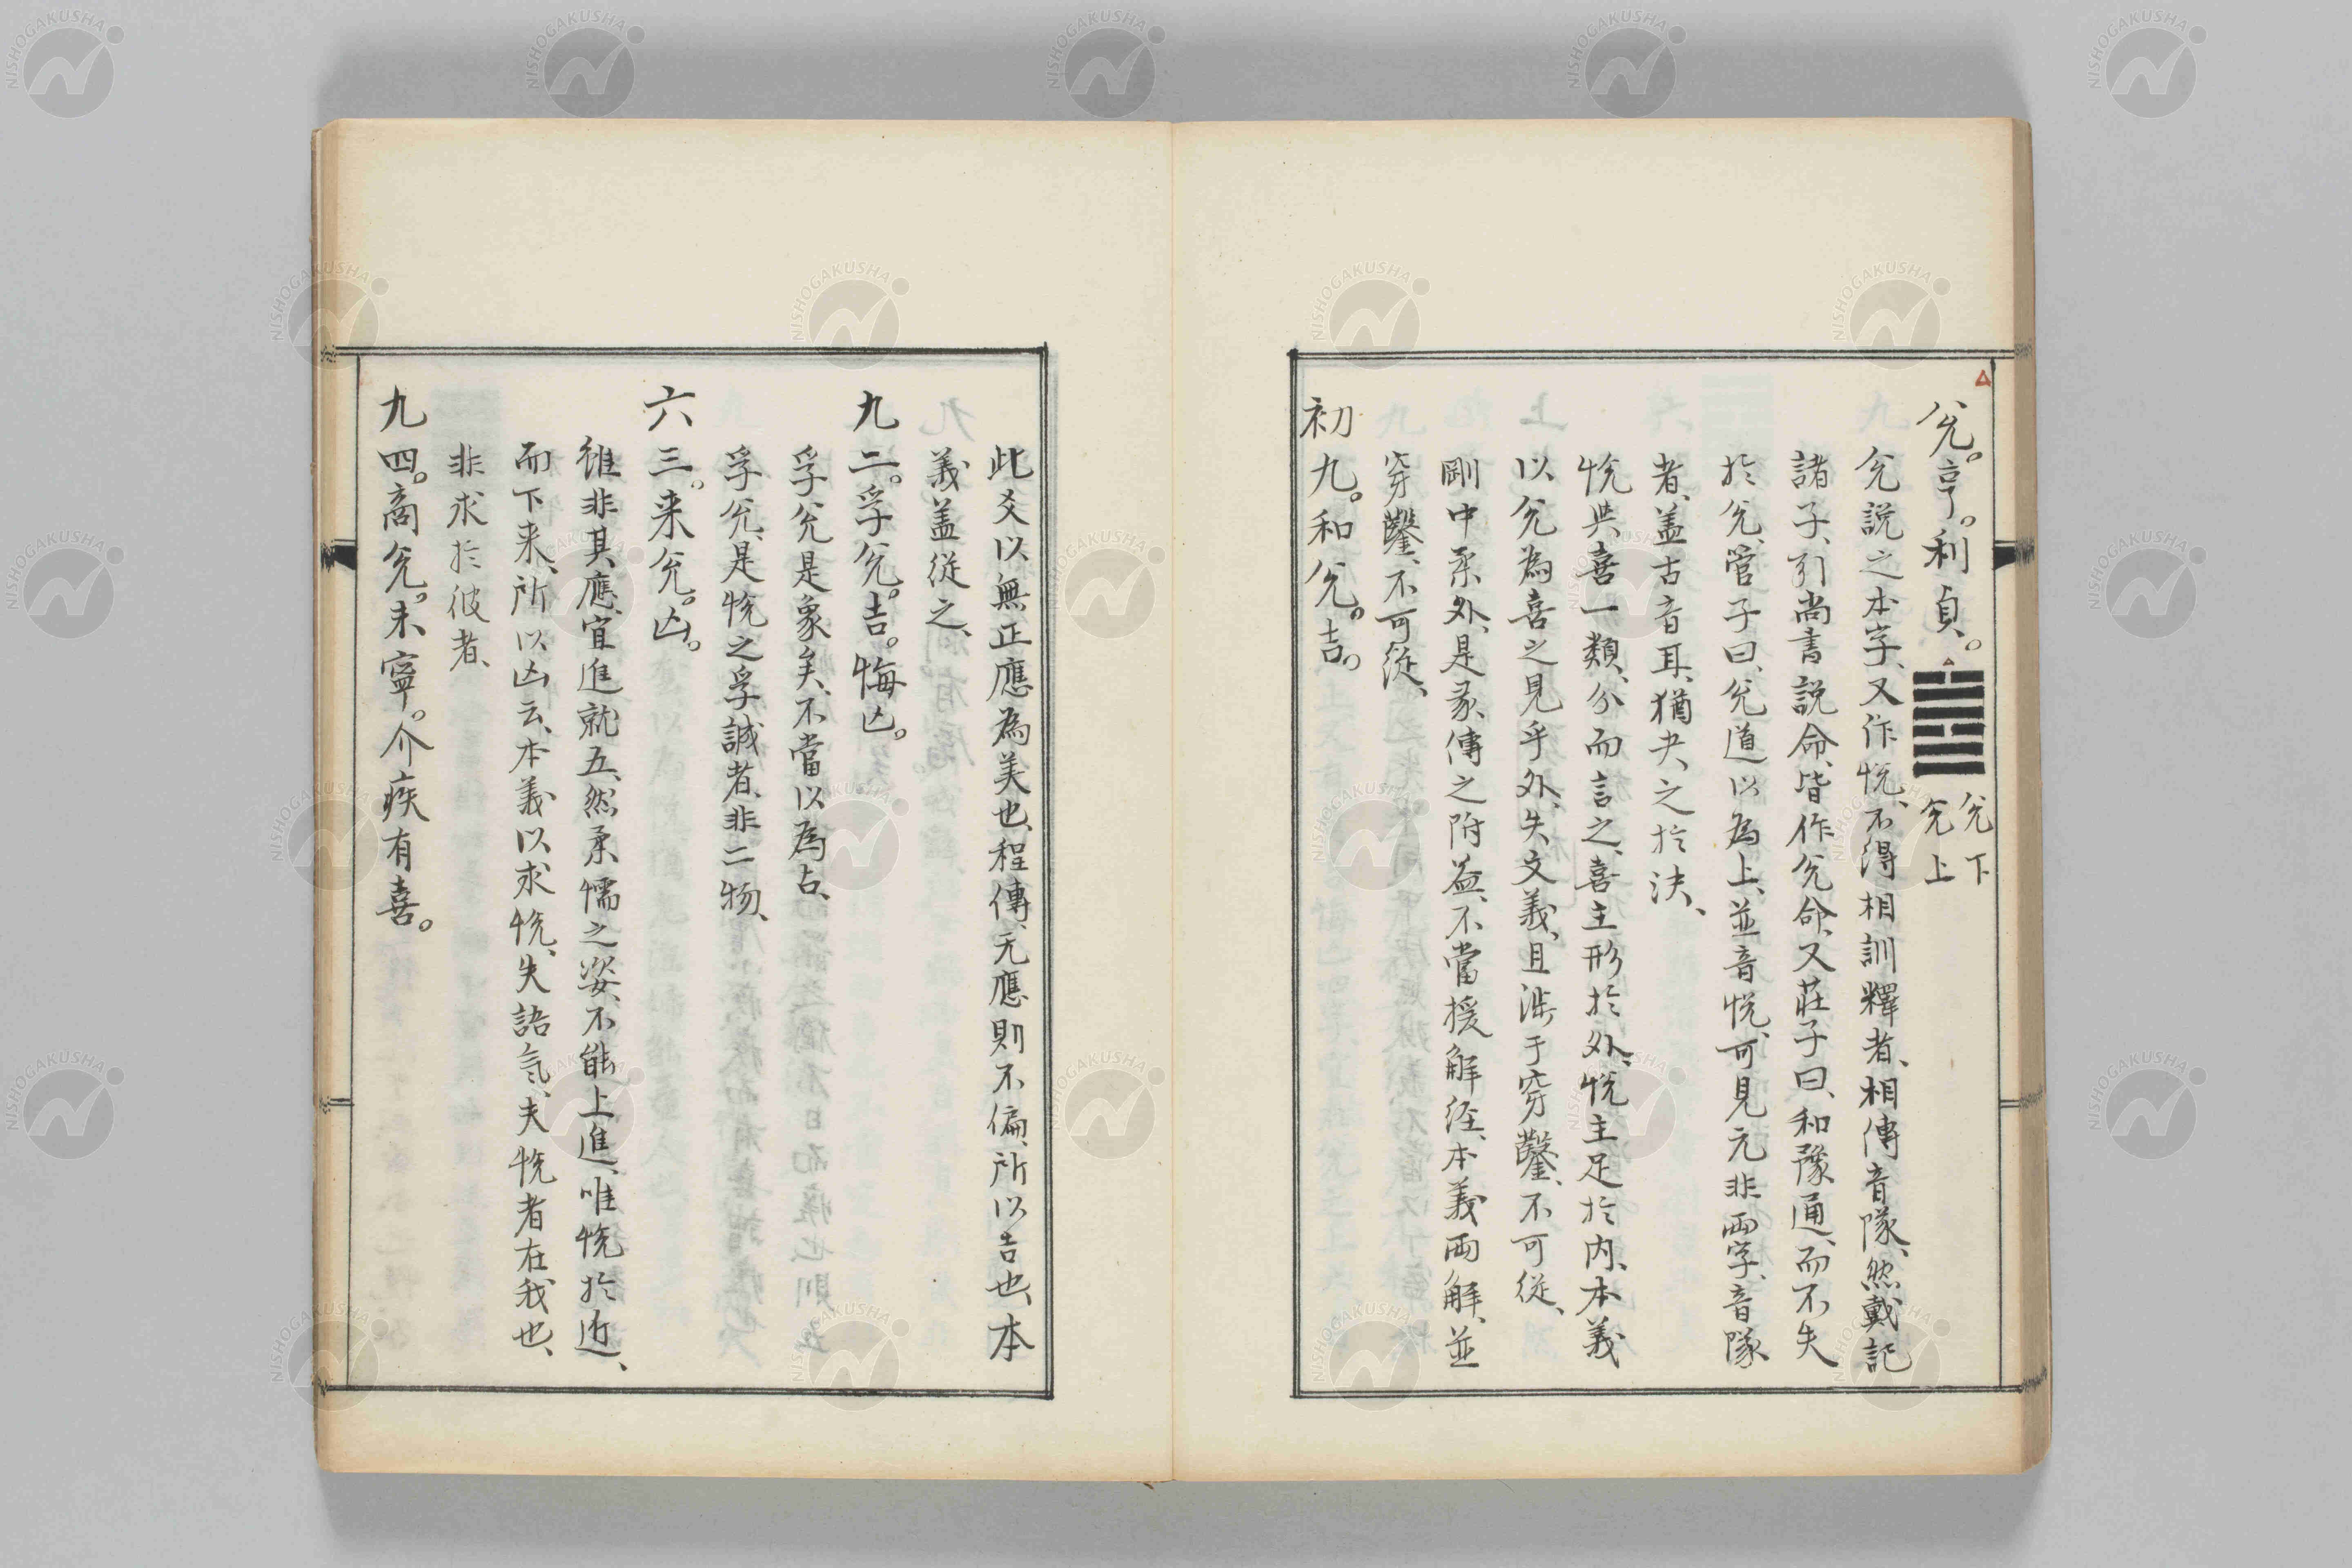 兌。亨。利貞。兌下兌上
兌説之本字、又作悦、不得相訓釋者、相傳音隊、然戴記
諸子、引尚書説命、皆作兌命、又荘子曰、和豫通、而不失
於兌、管子曰、兌道以為上、並音悦、可見元非両字、音隊
者、蓋古音耳、猶夬之於決、
悦與喜一類、分而言之、喜主形於外、悦主足於内、本義
以兌為喜之見乎外、失文義、且渉于穿鑿、不可従、
剛中柔外、是彖傳之附益、不當援解経、本義両解、並
穿鑿、不可從、
初九。和兌。吉。
此爻以無正應為美也、程傳、无應則不偏、所以吉也、本
義蓋從之、
九二。孚兌。吉。悔亡。
孚兌是象矣、不當以為占、
孚兌、是悦之孚誠者、非二物、
六三。来兌。凶。
雖非其應、宜進就五、然柔懦之姿、不能上進、唯悦於近、
而下来、所以凶云、本義以求悦、失語氣、夫悦者在我也、
非求於彼者、
九四。商兌。未寧。介疾有喜。
NISHOGAKUSHA